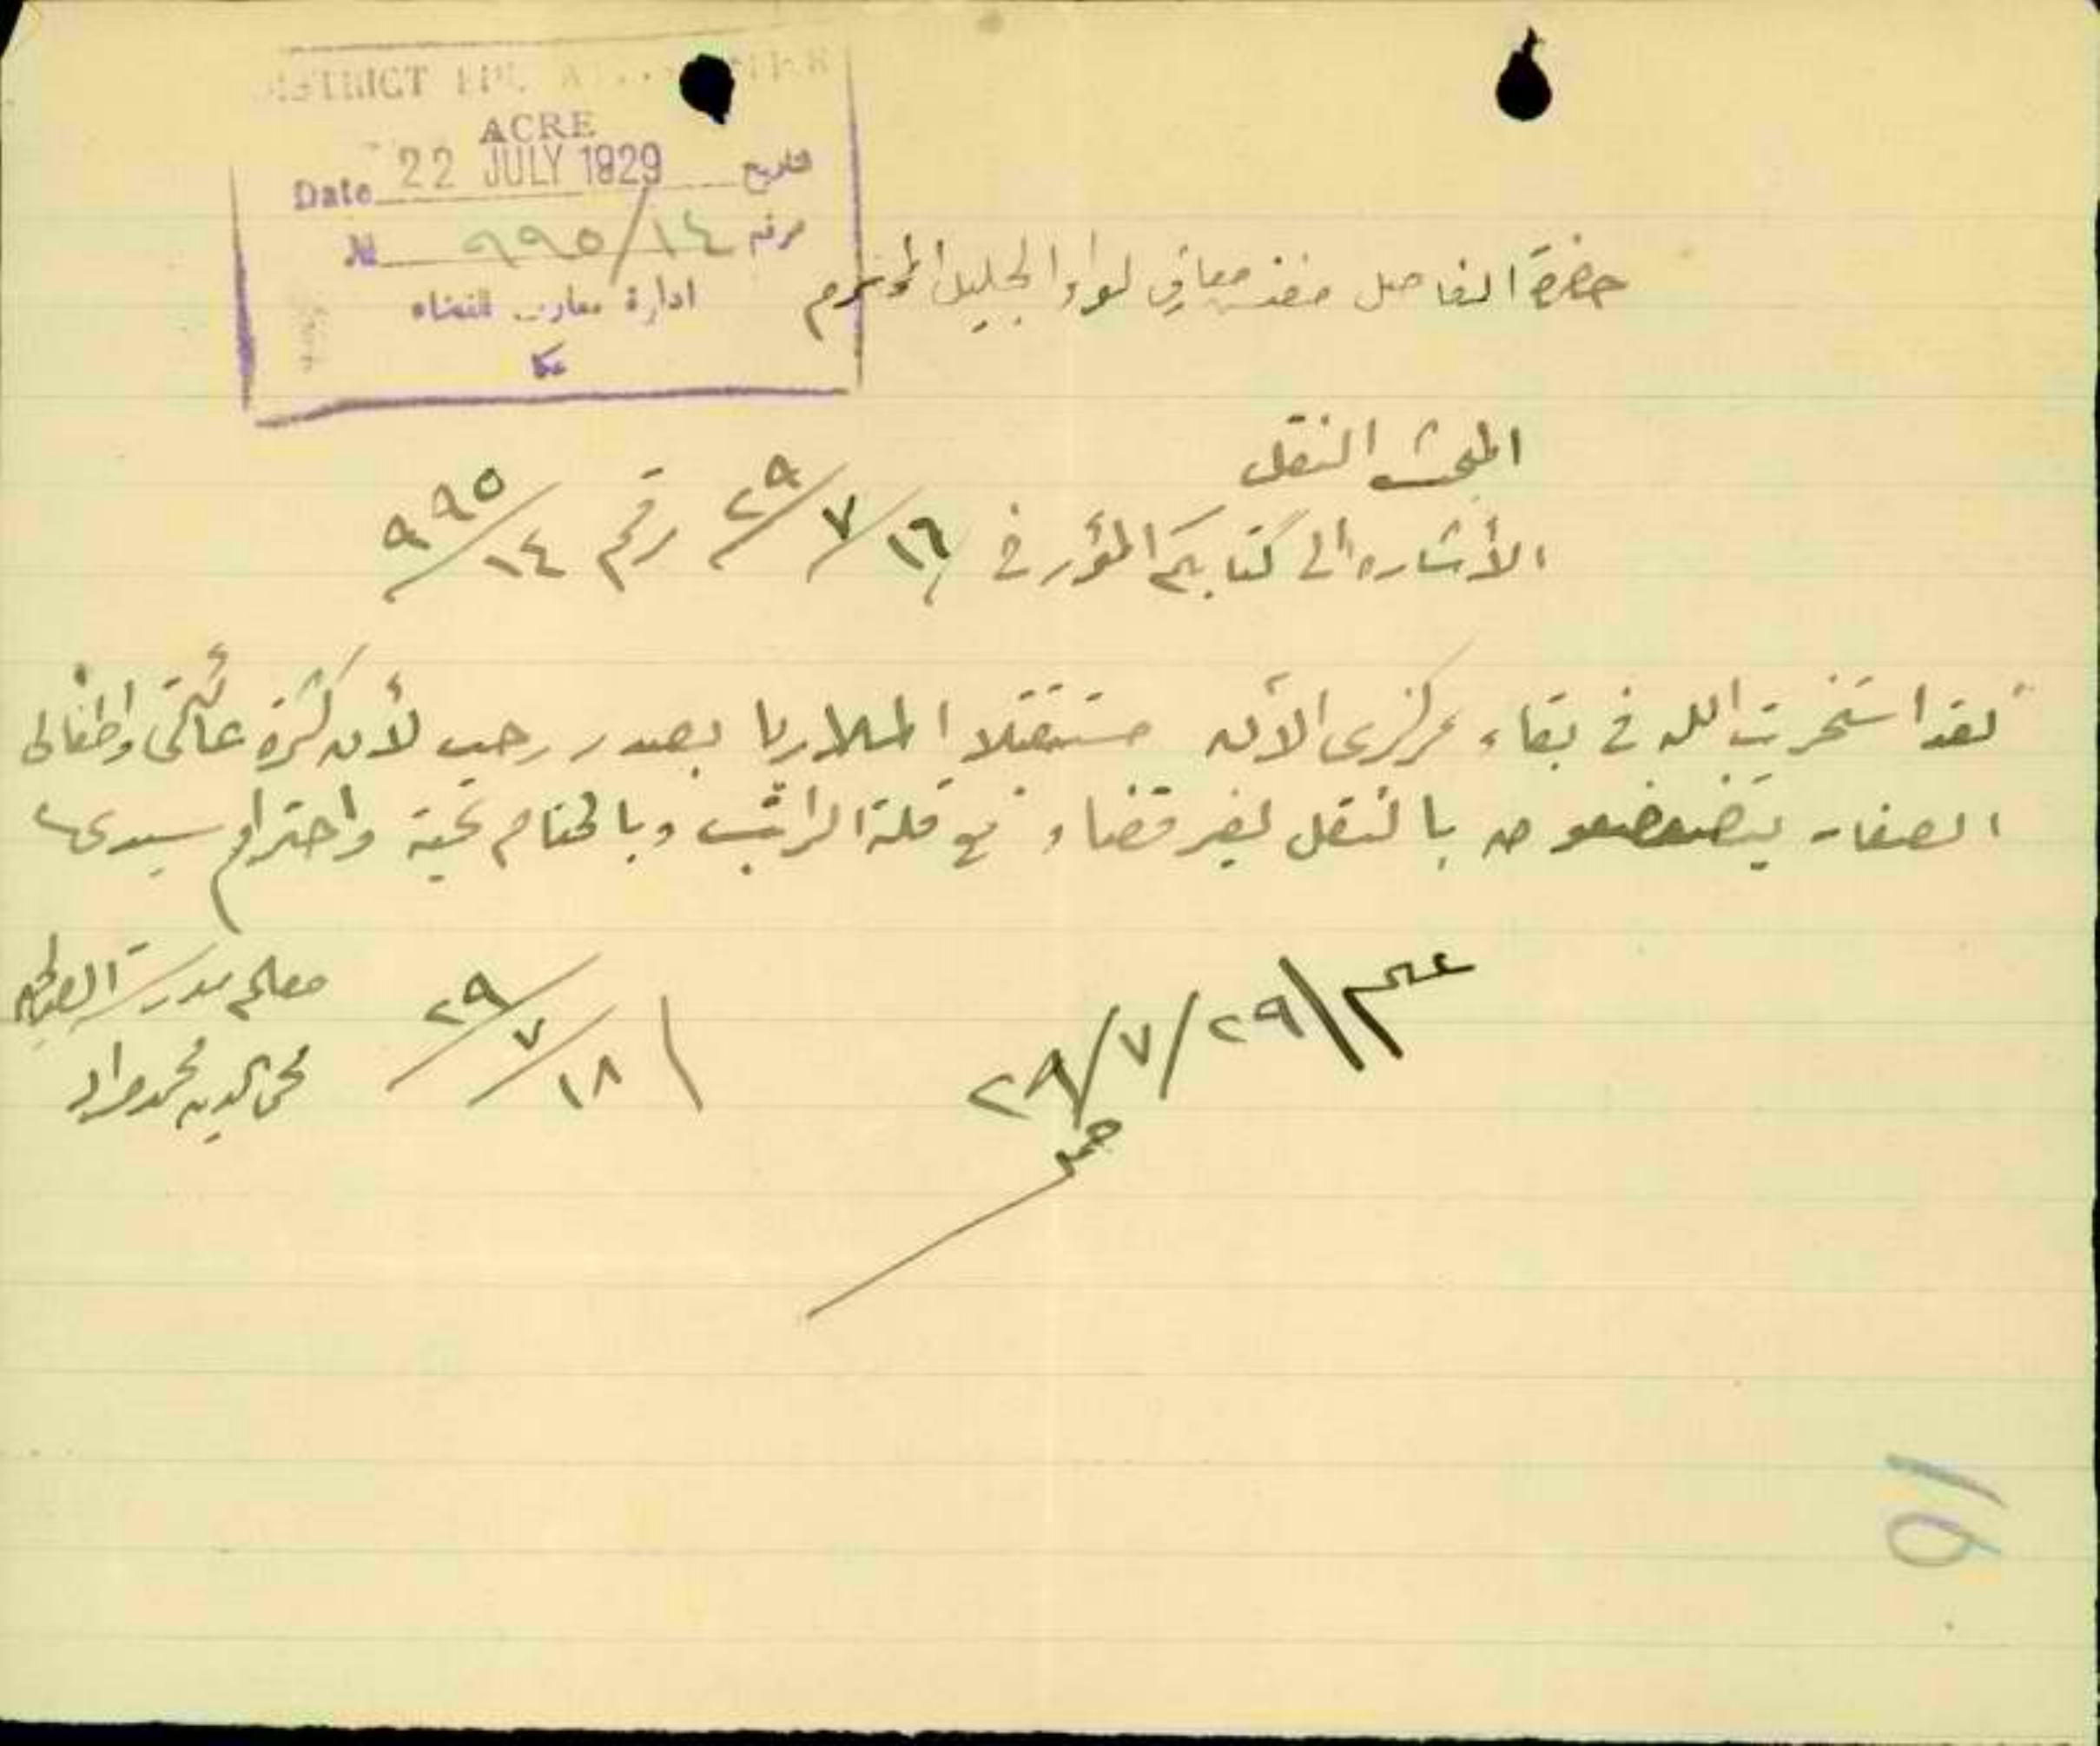 DISTRICT
ACRE
Date 22 JULY 1929 التاريخ
№ ٩٩٥/١٤ مرقم
ادارة معارف القضاء
عكا
حضرة الفاضل مفتش معارف لواء الجليل المحترم
المبحث النقل
الأشاره الى كتابكم المؤرخ في ١٦/٧/٢٩ رقم ٩٩٥/١٤
لقد استخرت الله في بقاء مركزي الآن مستقبلا الملاريا بصدر رحب لأن كثرة عائلتي واطفالي
الصغار يتضعضعون بالنقل لغير قضاء مع قلة الراتب وبالختام تحية واحترام سيدي
معلم مدرسة
محي الدين محمد مراد
١٨/٧/٢٩
٢٩/٧/٢٩
91